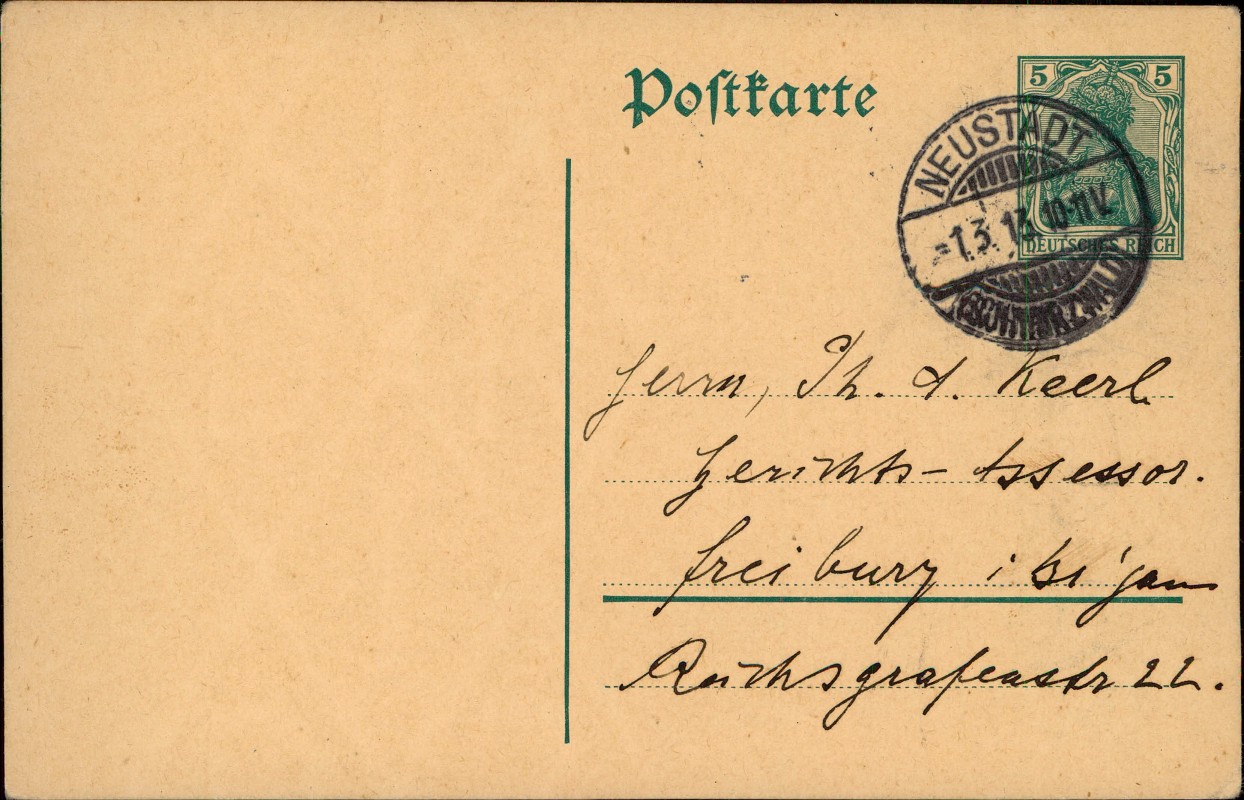 Postkarte
5 5
DEUTSCHES REICH
NEUSTADT
1.3.13. 10-11V.
(SCHWARZWALD)
Herrn, Th. A. Keerl
Gerichts-Assessor.
Freiburg i
Reichsgrafenstr 22.